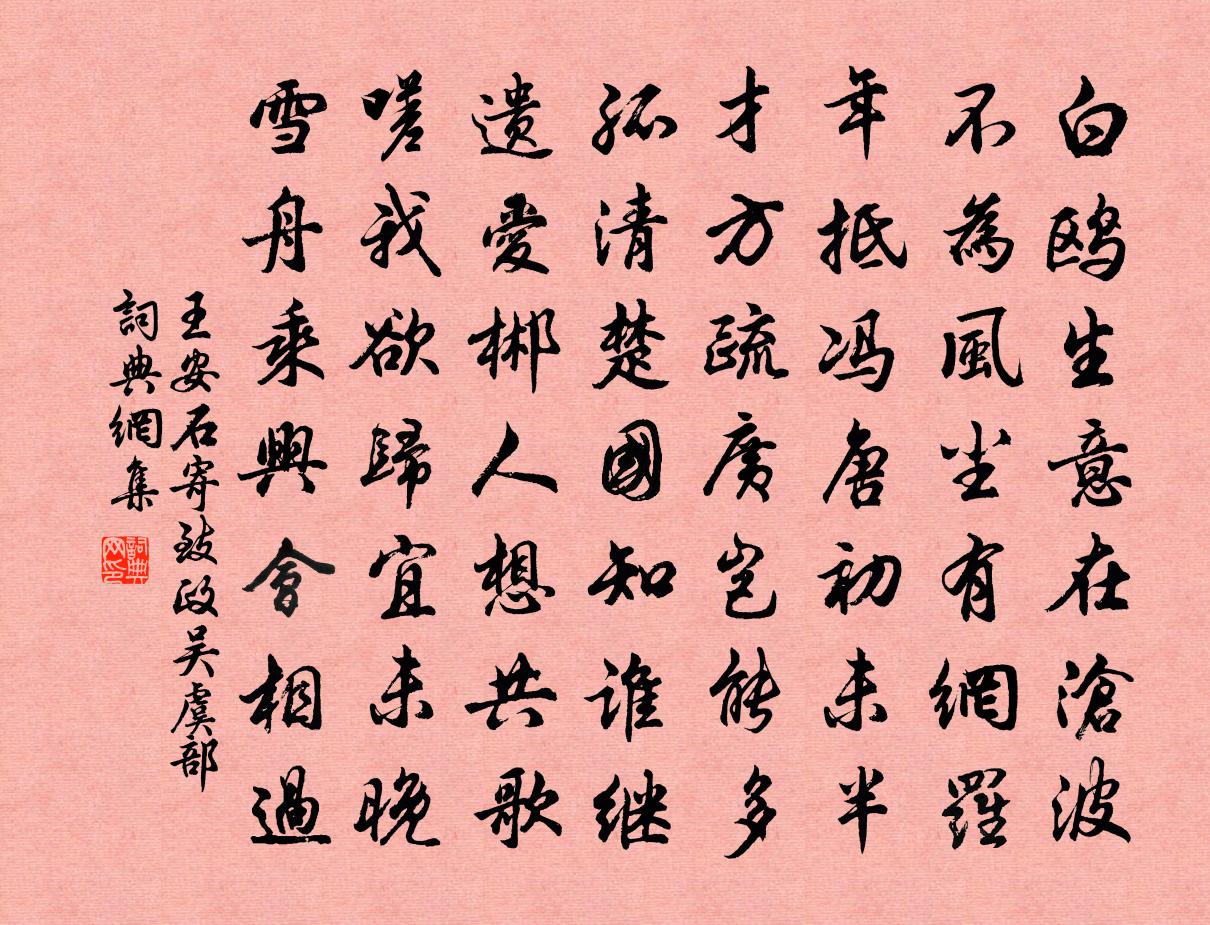 白鸥生意在滄波
不為風尘有網羅
年抵冯唐初未半
才方疏廣岂能多
孤清楚國知谁继
遗愛郴人想共歌
嗟我欲歸宜未晚
雪舟乘興會相過
王安石寄致政吴虞部
詞典網集
詞典网印